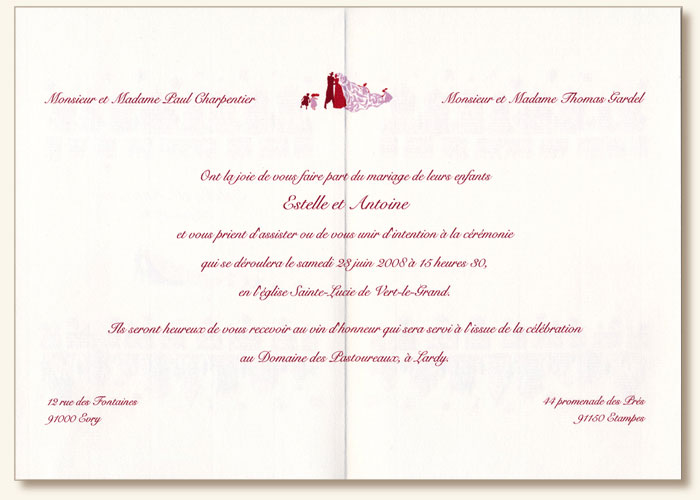 Monsieur et Madame Paul Charpentier
Monsieur et Madame Thomas Gardel
Ont la joie de vous faire part du mariage de leurs enfants
Estelle et Antoine
et vous prient d'assister ou de vous unir d'intention à la cérémonie
qui se déroulera le samedi 28 juin 2008 à 15 heures 30,
en l'église Sainte-Lucie de Vert-le-Grand.
Ils seront heureux de vous recevoir au vin d'honneur qui sera servi à l'issue de la célébration
au Domaine des Pastoureaux, à Lardy.
12 rue des Fontaines
91000 Evry
44 promenade des Prés
91150 Etampes